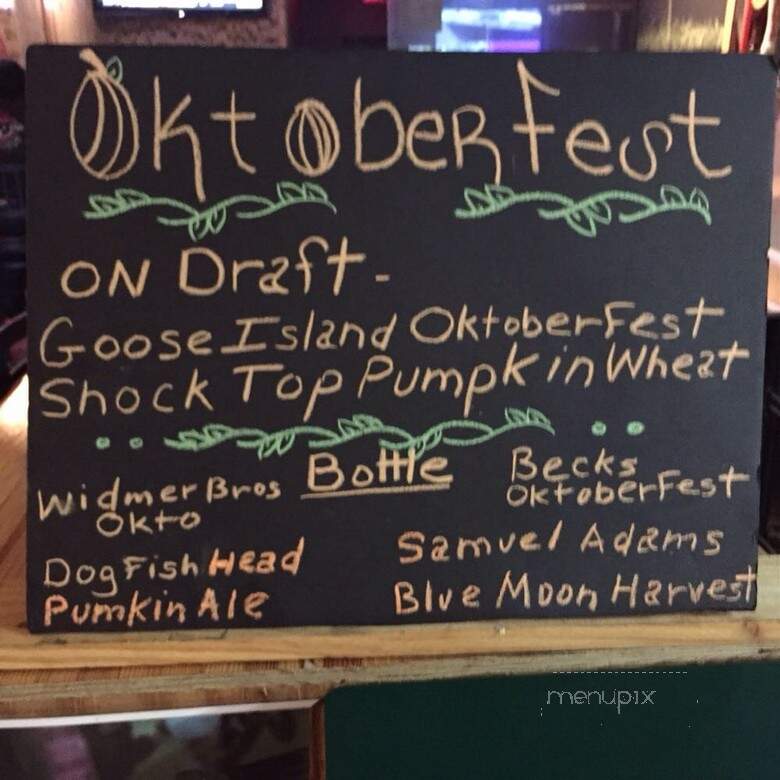 Oktoberfest
ON Draft-
Goose Island OktoberFest
Shock Top Pumpkin Wheat
Bottle
Widmer Bros
Okto
DogFish Head
Pumkin Ale
Becks
OktoberFest
Samuel Adams
Blue Moon Harvest
menupix